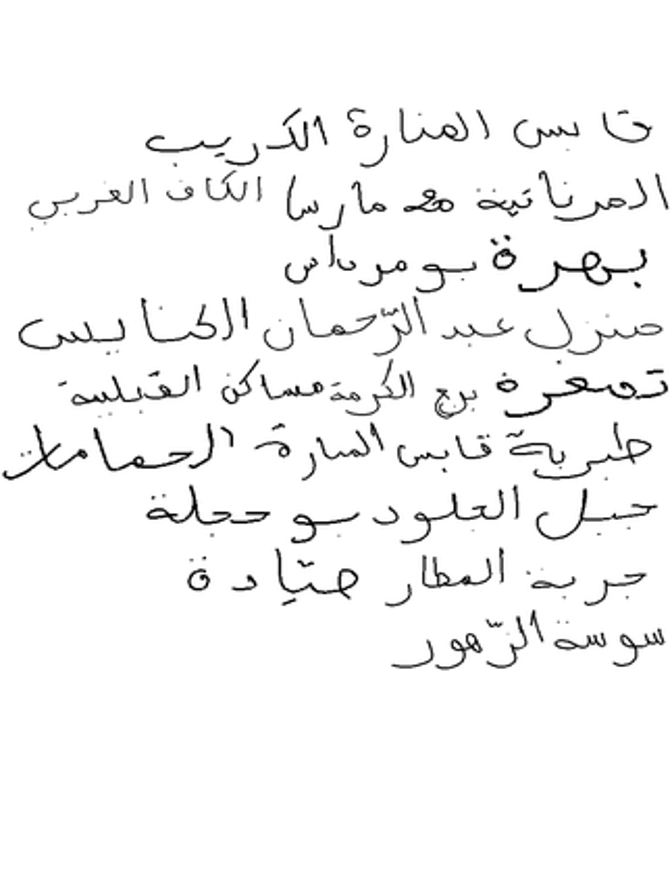 قابس المنارة الكريب
المرناقية 20 مارس الكاف الغربي
بهرة بومرداس
منزل عبد الرّحمان الكنايس
تمغرة برج الكرمة مساكن القبلية
طبربة قابس المنارة الحمامات
جبل الجلود بو حجلة
جربة المطار صيّادة
سوسة الزّهور